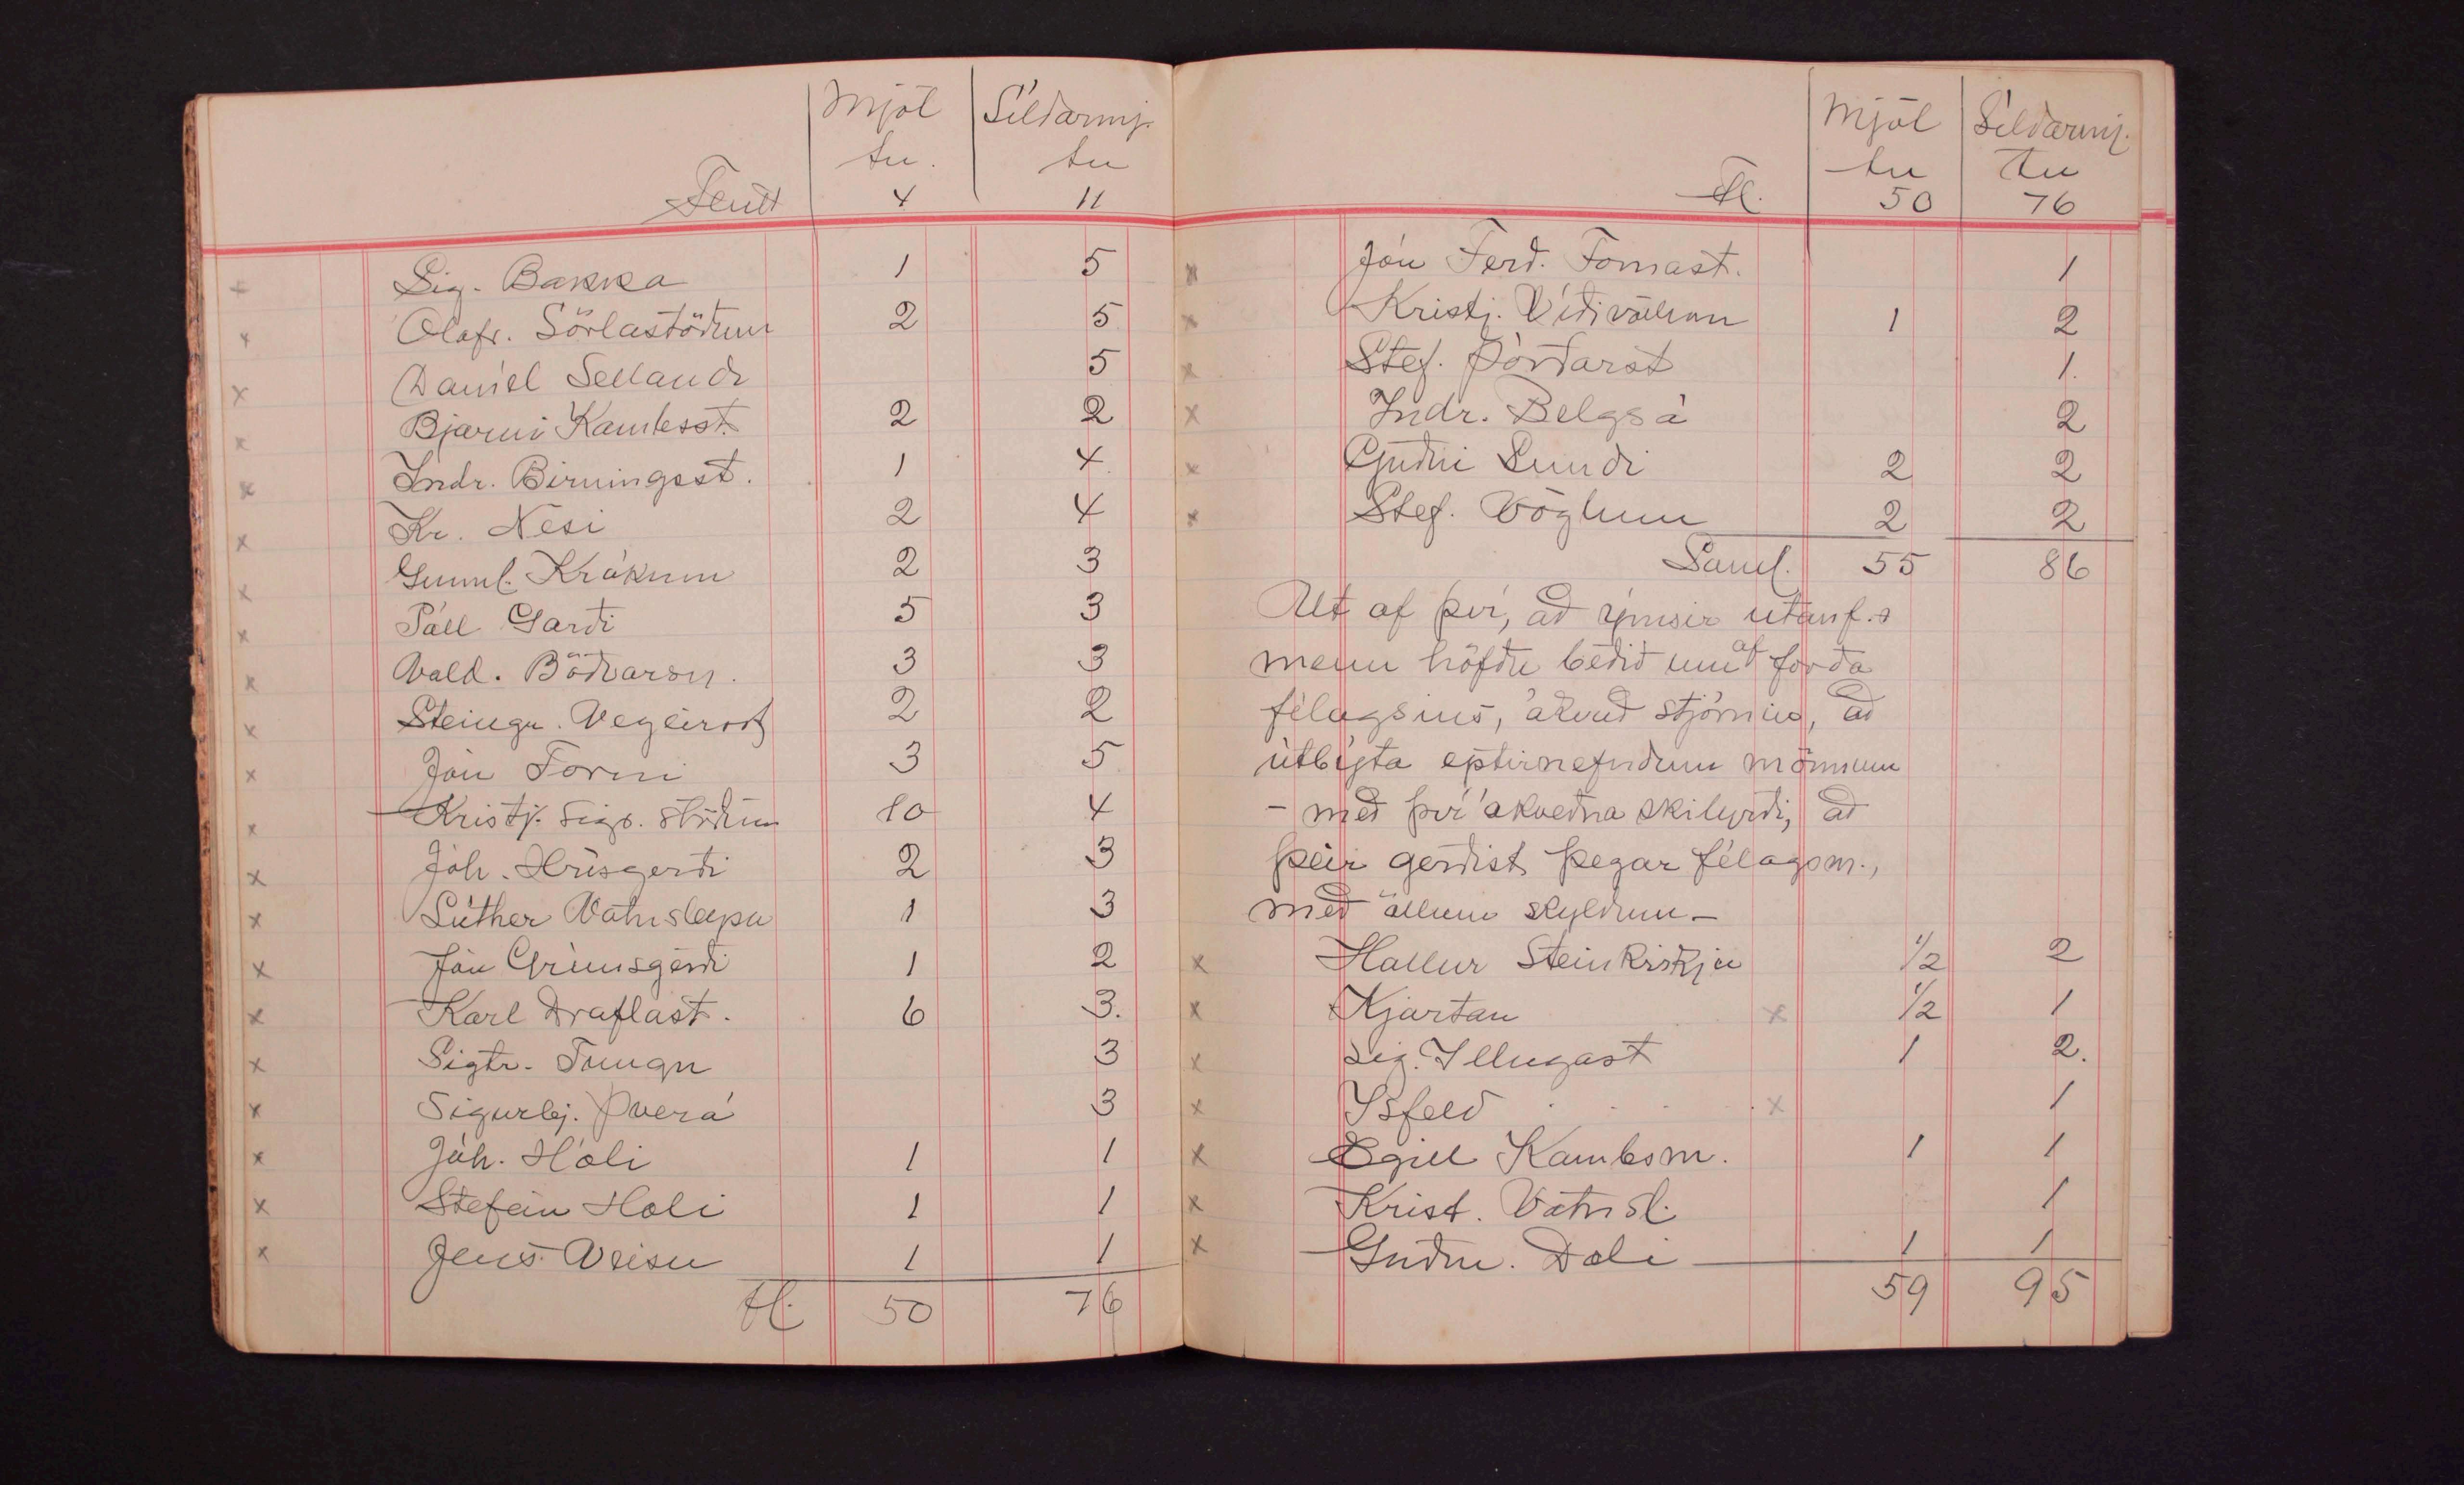 Mjöl Síldarmj.
tu. tu
Flutt 4 11
Sig. Bakka 1 5
Olafr. Sörlastöðum 2 5
Daníel Sellandi 5
Bjarni Kambsst. 2 2
Indr. Birningsst. 1 4
Kr. Nesi 2 4
Gunnl. Krákum 2 3
Páll Garði 5 3
Vald. Böðvarsn. 3 3
Steingr. Vegeirsst 2 2
Jón Forni 3 5
Kristj. Sigs. stöðum 10 4
Jóh. Hrísgerði 2 3
Lúther Vatnsleysu 1 3
Jón Grímsgerði 1 2
Karl Draflast. 6 3.
Sigtr. Tungu 3
Sigurbj. Þverá 3
Jóh. Hóli 1 1
Stefán Hóli 1 1
Jens. Veisu 1 1
Fl. 50 76
Mjöl Síldarmj.
tu tu
Fl. 50 76
Jón Ferd. Fornast. 1
Kristj. Víðivöllum 1 2
Stef. Þórðarst 1.
Indr. Belgsá 2
Guðni Lundi 2 2
Stef. Vöglum 2 2
Saml. 55 86
Út af því, að ýmsir utanf.s
menn höfðu beðið um af forða
félagsins, ákvað stjórnin, að
útbýta eptirnefndum mönnum
– með því ákveðna skilyrði, að
þeir gerðist þegar félagsm.,
með öllum skyldum –
Hallur Steinkirkju 1/2 2
Kjartan x 1/2 1
Sig. Illugast 1 2.
Ísfeld . . . . x 1
Egill Kambsm. 1 1
Krist. Vatnsl. 1
Guðm. Dæli 1 1
59 95